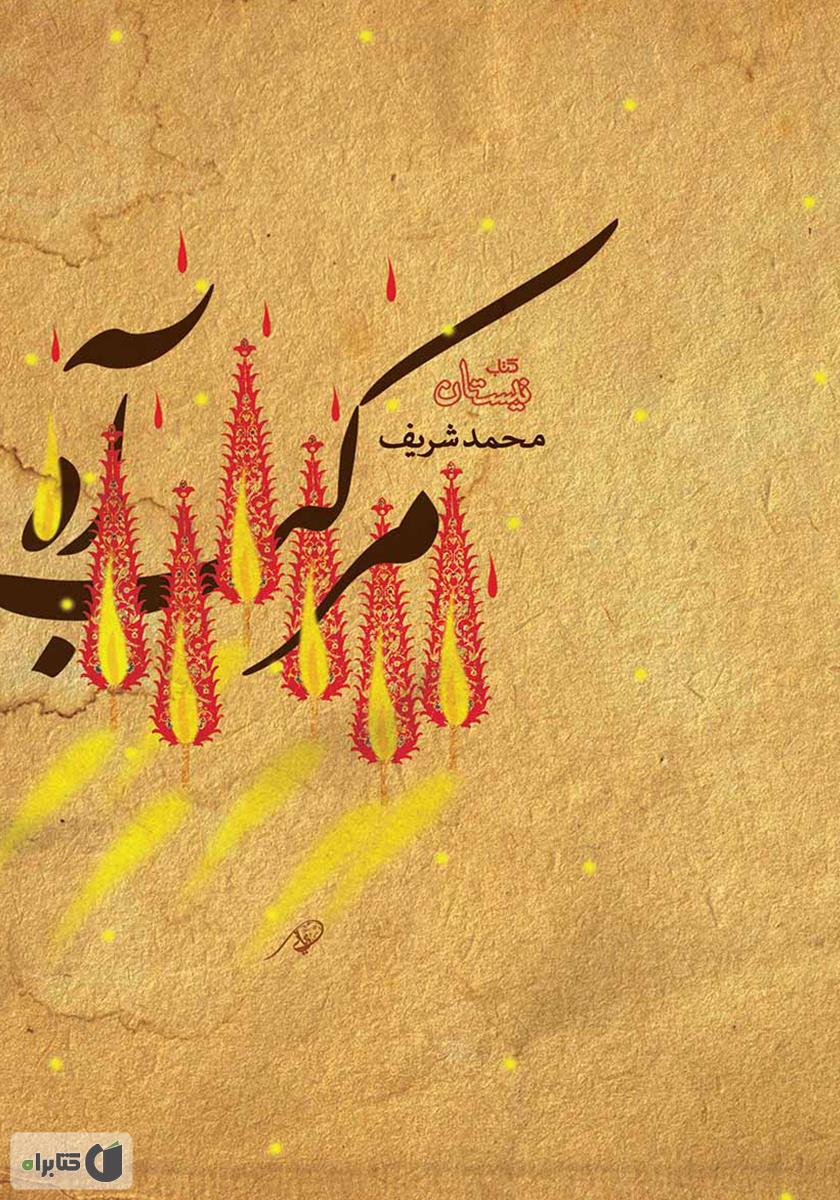 مرکب آره
کتاب
نیستان
محمد شریف
کتابراه